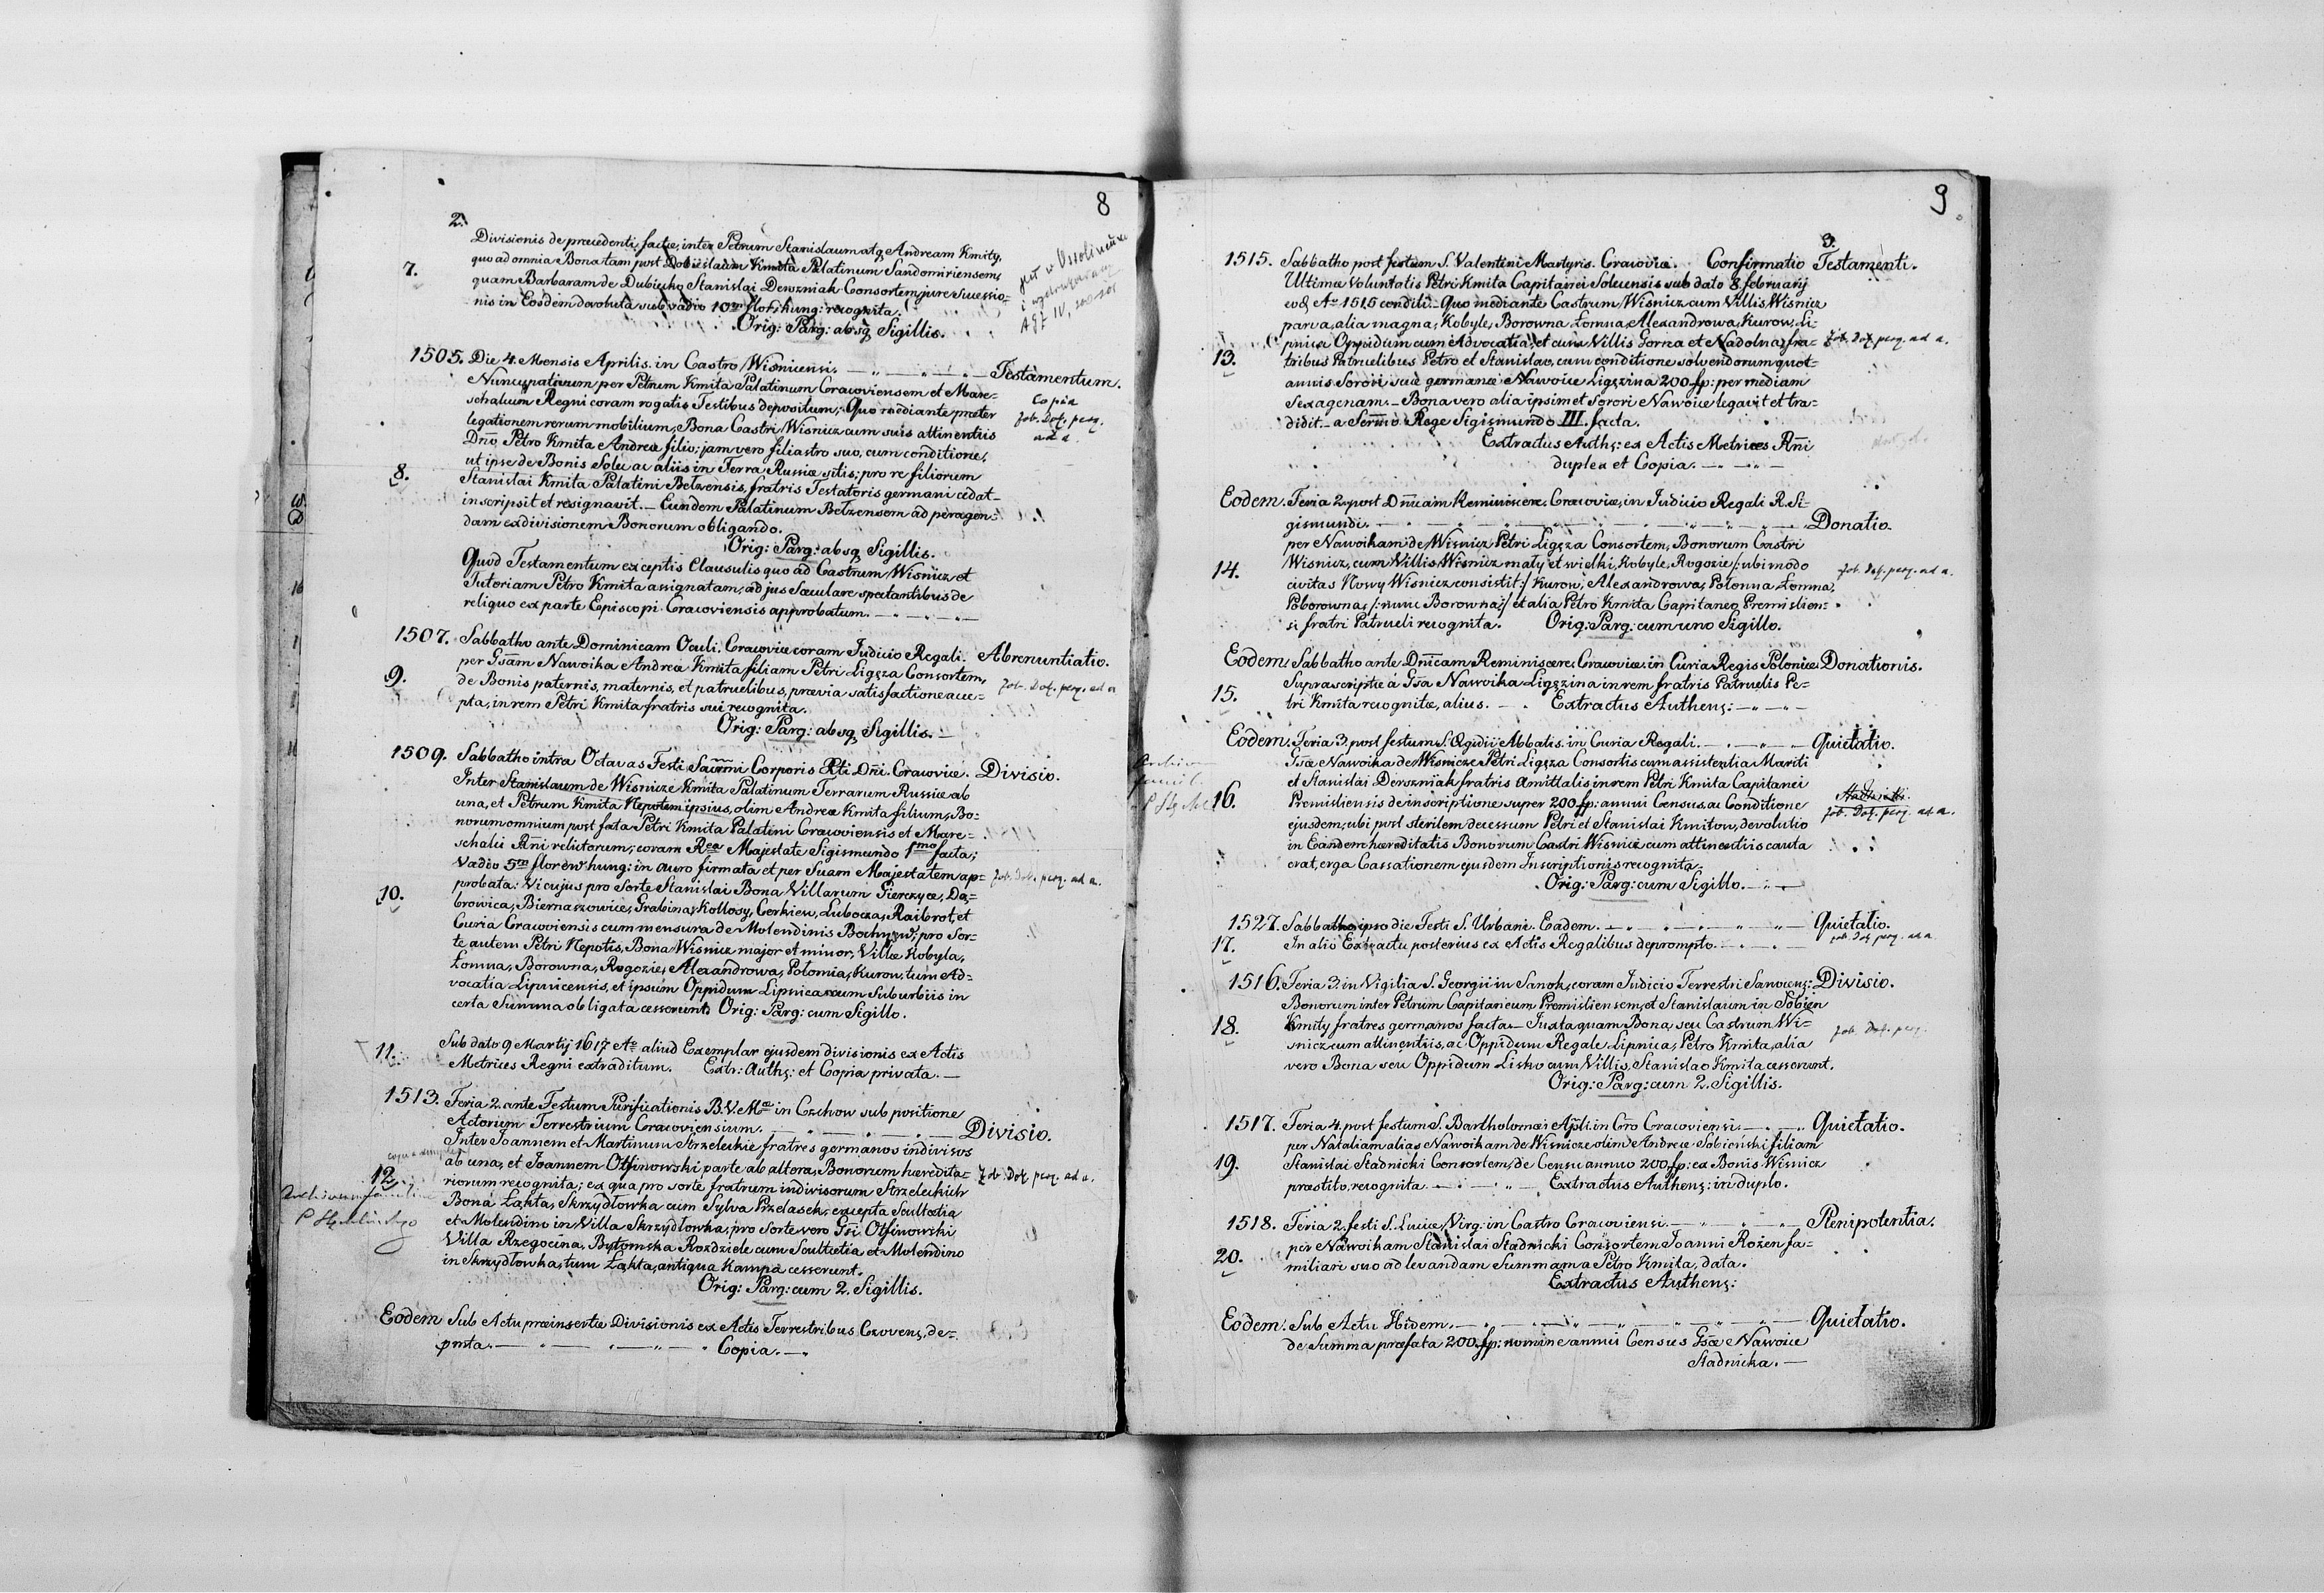 8
2.
Divisionis de præcedenti, factæ, inter Petrum Stanislaum atq Andream Kmity,
quo ad omnia Bona tam post Dobieslaum Kmita Palatinum Sandomiriensem,
7. quam Barbaram de Dubiecko Stanislai Derszniak Consortem jure Successio=
nis in Eosdem devoluta sub vadio 10m flor: hung: recognita.
Orig: Parg: absq Sigillis.
jest w Ossolineum
i wydrukowany
AGZ IV,
1505. Die 4. Mensis Aprilis in Castro Wisnicensi. Testamentum.
Nuncupativum per Petrum Kmita Palatinum Cracoviensem et Mare=
schalcum Regni coram rogatis Testibus depositum; Quo mediante præter
legationem rerum mobilium, Bona Castri Wisnicz cum suis attinentiis
Dnō Petro Kmita Andreæ filio; jam vero filiastro suo, cum conditione,
ut ipse de Bonis Solec ac aliis in Terra Russiæ sitis; pro re filiorum
8. Stanislai Kmita Palatini Belzensis, fratris Testatoris germani cedat_
inscripsit et resignavit._ Eundem Palatinum Belzensem ad peragen=
dam exdivisionem Bonorum obligando.
Orig: Parg: absq Sigillis.
Copia
Zob. Dok. perg.
ad a.
Quod Testamentum exceptis Clausulis quo ad Castrum Wisnicz et
Tutoriam Petro Kmita assignatam, ad jus Sæculare spectantibus de
reliquo ex parte Episcopi Cracoviensis approbatum.
1507. Sabbatho ante Dominicam Oculi. Cracoviæ coram Judicio Regali. Abrenuntiatio.
per Gsām Nawoika Andreæ Kmita filiam Petri Ligęza Consortem,
9. de Bonis paternis, maternis, et patruelibus, prævia satisfactione acce= Zob. Dok. perg. ad a.
pta, in rem Petri Kmita fratris sui recognita.
Orig: Parg: absq Sigillis.
1509. Sabbatho intra Octavas Festi Sacrm̄i Corporis Xti Dn̄i. Cracoviæ. Divisio.
Inter Stanislaum de Wisnicze Kmita Palatinum Terrarum Russiæ ab
una, et Petrum Kmita Nepotem ipsius, olim Andreæ Kmita filium, Bo=
norum omnium post fata Petri Kmita Palatini Cracoviensis et Mare=
schalci Rn̄i relictorum; coram Rea Majestate Sigismundo 1mo facta;
Vadio 5m florenor hung: in auro firmata et per Suam Majestatem ap= Zob. Dok. perg. ad a.
probata: Vi cujus pro Sorte Stanislai Bona Villarum Gierczyce, Dą=
10. browica, Biernaszowice, Grabina, Kollosy, Cerkiew, Lubocza, Raibrot, et
Curia Cracoviensis cum mensura de Molendinis Bochnen; pro Sor=
te autem Petri Nepotis, Bona Wisnicz major et minor, Villæ Kobyla,
Łomna, Borowna, Rogozie, Alexandrowa, Połomia, Kurow, tum Ad=
vocatia Lipnicensis, et ipsum Oppidum Lipnica cum Suburbiis in
certa Summa obligata cesserunt. Orig: Parg: cum Sigillo.
11. Sub dato 9 Martij 1617 Ao aliud Exemplar ejusdem divisionis ex Actis
Metrices Regni extraditum. Extr: Auths: et Copia privata.
1513. Feria 2. ante Festum Purificationis B.V.Mæ in Czchow sub positione
Actorum Terrestrium Cracoviensium. Divisio.
Inter Joannem et Martinum Strzeleckie fratres germanos indivisos
ab una, et Joannem Otfinowski parte ab altera, Bonorum hæredita= Zob. Dok. perg. ad a.
12. riorum recognita; ex qua pro sorte fratrum indivisorum Strzeleckich
Bona Łąkta, Skrzydłowka cum Sylva Przelasek, excepta Scultetia
et Molendino in Villa Skrzydłowka, pro Sorte vero Gsi Otfinowski
Villa Rzegocina, Bytomska Rozdziele cum Scultetia et Molendino
in Skrzydłowka, tum Łąkta, antiqua Kampa cesserunt.
Orig: Parg: cum 2. Sigillis.
Eodem Sub Actu præinsertæ Divisionis ex Actis Terrestribus Czovens, de=
pmta. Copia.
9
3.
1515. Sabbatho post festum S. Valentini Martyris. Cracoviæ. Confirmatio Testamenti.
Ultimæ Voluntatis Petri Kmita Capitanei Solecensis sub dato 8 februarij
eod Ao 1515 conditi._ Quo mediante Castrum Wisnicz cum Villis Wisnicz
parva, alia magna, Kobyle, Borowna, Łomna, Alexandrowa, Kurow, Li=
pnica Oppidum cum Advocatia, et cum Villis Gorna et Nadolna, fra= Zob. Dok. perg. ad a.
13. tribus Patruelibus Petro et Stanislao, cum conditione solvendorum quot=
annis Sorori suæ germanæ Nawoice Ligęzina 200 fp: per mediam
Sexagenam._ Bona vero alia ipsimet Sorori Nawoice legavit et tra=
didit._ a Serm̄o Rege Sigismundo III. facta.
Extractus Auths: ex Actis Metrices Rn̄i
duplex et Copia.
Eodem. Feria 2. post Dnīcam Reminiscere. Cracoviæ, in Judicio Regali R. Si=
gismundi. Donatio.
per Nawoikam de Wisnicz Petri Ligęza Consortem, Bonorum Castri
14. Wisnicz, cum Villis Wisnicz mały et wielki, Kobyle, Rogozie /:ubi modo Zob. Dok. perg. ad a.
civitas Nowy Wisnicz consistit:/ Kurow, Alexandrowa, Połonna Łomna,
Poborowna, /:nunc Borowna:/ et alia Petro Kmita Capitaneo Premislien=
si fratri Patrueli recognita. Orig: Parg: cum uno Sigillo.
Eodem. Sabbatho ante Dn̄icam Reminiscere, Cracoviæ, in Curia Regis Poloniæ Donationis.
Suprascriptæ à Gsā Nawoika Ligęzina in rem fratris Patruelis Pe=
15. tri Kmita recognitæ, alius. Extractus Authens:
Eodem. Feria 3. post festum S. Ægidii Abbatis in Curia Regali. Quietatio.
Gsæ Nawoika de Wisnicze Petri Ligęza Consortis cum assistentia Mariti
et Stanislai Derszniak fratris Amittalis in rem Petri Kmita Capitanei
16. Premisliensis de inscriptione super 200 fp: annui Census, ac Conditione
ejusdem, ubi post sterilem decessum Petri et Stanislai Kmitow, devolutio Zob. Dok. perg. ad a.
in Eandem hæreditatis Bonorum Castri Wisnicz cum attinentiis cauta
erat, erga Cassationem ejusdem Inscriptionis recognita.
Orig: Parg: cum Sigillo.
1527. Sabbatho ipso die Festi S. Urbani. Eadem. Quietatio.
17. In alio Extractu posterius ex Actis Regalibus deprompto. Zob. Dok. perg. ad a.
1516. Feria 3. in Vigilia S. Georgii in Sanok, coram Judicio Terrestri Sanocens: Divisio.
Bonorum inter Petrum Capitaneum Premisliensem, et Stanislaum in Sobien
18. Kmity fratres germanos facta._ Juxta quam Bona, seu Castrum Wi= Zob. Dok. perg.
snicz cum attinentiis, ac Oppidum Regale Lipnica, Petro Kmita, alia
vero Bona seu Oppidum Lisko cum Villis, Stanislao Kmita cesserunt.
Orig: Parg: cum 2. Sigillis.
1517. Feria 4. post festum S. Bartholomæi Apl̄i in Cro Cracoviensi. Quietatio.
per Nataliam alias Nawoikam de Wisnicze olim Andreæ Sobieński filiam
19. Stanislai Stadnicki Consortem, de Censu annuo 200 fp: ex Bonis Wisnicz
præstito, recognita. Extractus Authens: in duplo.
1518. Feria 2. festi S. Luciæ Virg. in Castro Cracoviensi. Plenipotentia.
per Nawoikam Stanislai Stadnicki Consortem Joanni Rożen fa=
20. miliari suo ad levandam Summam a Petro Kmita, data.
Extractus Authens:
Eodem. Sub Actu Ibidem. Quietatio.
de Summa præfata 200 fp: nomine annui Census Gsæ Nawoice
Stadnicka.